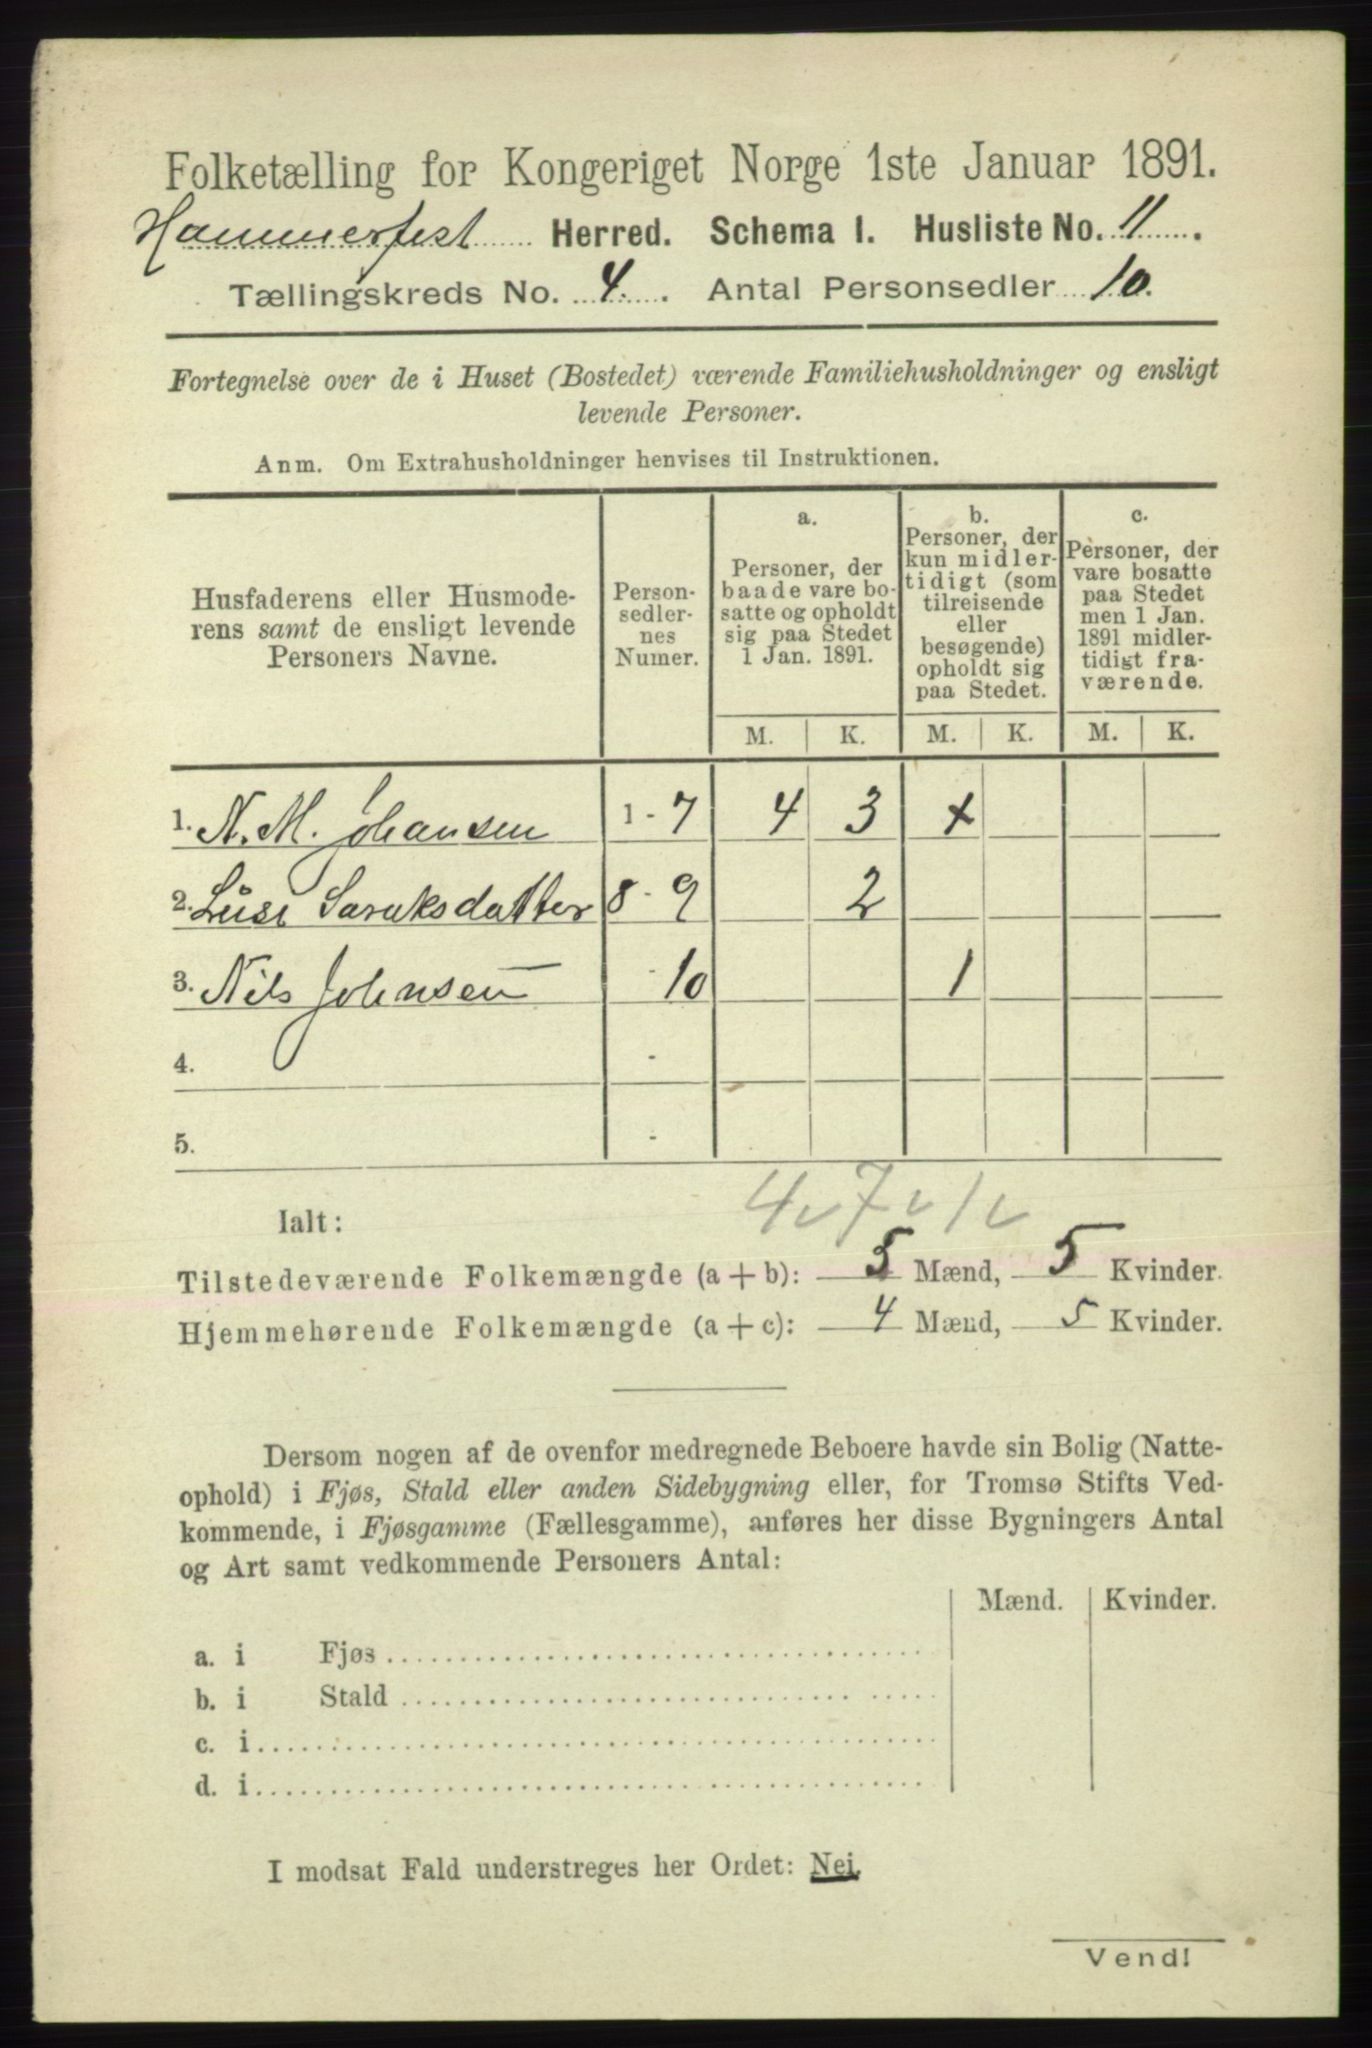 Folketælling for Kongeriget Norge 1ste Januar 1891.
Hammerfest Herred. Schema I. Husliste No. 11.
Tællingskreds No. 4. Antal Personsedler 10.
Fortegnelse over de i Huset (Bostedet) værende Familiehusholdninger og ensligt
levende Personer.
Anm. Om Extrahusholdninger henvises til Instruktionen.
Husfaderens eller Husmode-
rens samt de ensligt levende
Personers Navne.
Person-
sedler-
nes
Numer.
a.
Personer, der
baade vare bo-
satte og opholdt
sig paa Stedet
1 Jan. 1891.
b.
Personer, der
kun midler-
tidigt (som
tilreisende
eller
besøgende)
opholdt sig
paa Stedet.
c.
Personer, der
vare bosatte
paa Stedet
men 1 Jan.
1891 midler-
tidigt fra-
værende.
M. K. M. K. M. K.
1. N. M. Johansen 1 - 7 4 3 x
2. Saruksdatter 8 - 9 2
3. Nils Johnsen - 10 1
4. -
5. -
4 7 1
Ialt:
Tilstedeværende Folkemængde (a + b): 5 Mænd, 5 Kvinder.
Hjemmehørende Folkemængde (a + c): 4 Mænd, 5 Kvinder.
Dersom nogen af de ovenfor medregnede Beboere havde sin Bolig (Natte-
ophold) i Fjøs, Stald eller anden Sidebygning eller, for Tromsø Stifts Ved-
kommende, i Fjøsgamme (Fællesgamme), anføres her disse Bygningers Antal
og Art samt vedkommende Personers Antal:
Mænd. Kvinder.
a. i Fjøs
b. i Stald
c. i
d. i
I modsat Fald understreges her Ordet: Nei.
Vend!